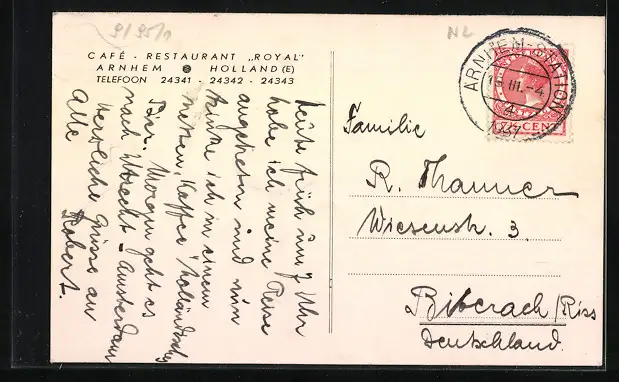 91951
NL
CAFÉ - RESTAURANT „ROYAL"
ARNHEM HOLLAND (E)
TELEFOON 24341 - 24342 - 24343
Heute früh um 7 Uhr
habe ich meine Reise
angetreten und nun
trinke ich in einem
netten „Kaffee" holländisch
Bier. Morgen geht es
nach Utrecht - Amsterdam
Herzliche Grüsse an
Alle
Robert.
ARNHEM-STATION
III.-4
1937
7½ CENT
Familie
R. Thanner
Wiesenstr. 3.
Biberach/Riss
Deutschland.